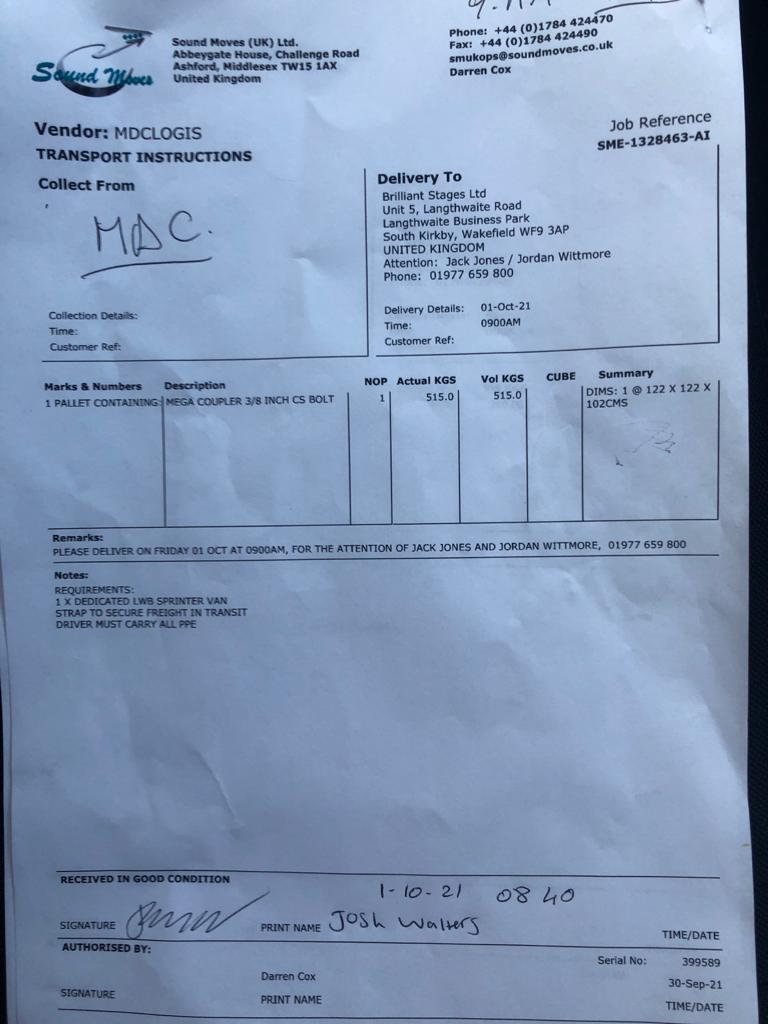 Sound Moves
Sound Moves (UK) Ltd.
Abbeygate House, Challenge Road
Ashford, Middlesex TW15 1AX
United Kingdom
Phone: +44 (0)1784 424470
Fax: +44 (0)1784 424490
smukops@soundmoves.co.uk
Darren Cox
Vendor: MDCLOGIS
TRANSPORT INSTRUCTIONS
Job Reference
SME-1328463-AI
Collect From
MDC.
Collection Details:
Time:
Customer Ref:
Delivery To
Brilliant Stages Ltd
Unit 5, Langthwaite Road
Langthwaite Business Park
South Kirkby, Wakefield WF9 3AP
UNITED KINGDOM
Attention: Jack Jones / Jordan Wittmore
Phone: 01977 659 800
Delivery Details: 01-Oct-21
Time: 0900AM
Customer Ref:
Marks & Numbers Description NOP Actual KGS Vol KGS CUBE Summary
1 PALLET CONTAINING: MEGA COUPLER 3/8 INCH CS BOLT 1 515.0 515.0 DIMS: 1 @ 122 X 122 X
102CMS
Remarks:
PLEASE DELIVER ON FRIDAY 01 OCT AT 0900AM, FOR THE ATTENTION OF JACK JONES AND JORDAN WITTMORE, 01977 659 800
Notes:
REQUIREMENTS:
1 X DEDICATED LWB SPRINTER VAN
STRAP TO SECURE FREIGHT IN TRANSIT
DRIVER MUST CARRY ALL PPE
RECEIVED IN GOOD CONDITION
1-10-21 0840
SIGNATURE PRINT NAME Josh Walters TIME/DATE
AUTHORISED BY:
Serial No: 399589
Darren Cox 30-Sep-21
SIGNATURE PRINT NAME TIME/DATE